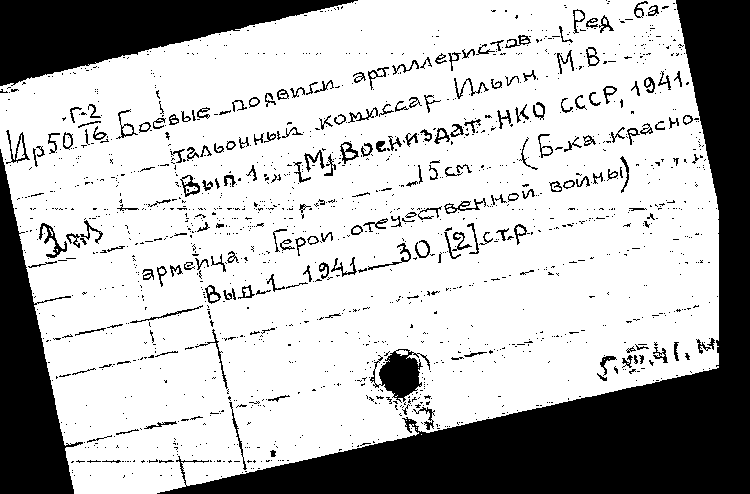 Г-2
Ир50 16 Боевые подвиги артиллеристов. [Ред. ба-
тальонный комиссар Ильин М.В.
Вып. 1. [М], Воениздат НКО СССР, 1941.
15 см. (Б-ка красно-
армейца. Герои отечественной войны)
Вып. 1 1941 30, [2] стр.
5.VII.41.